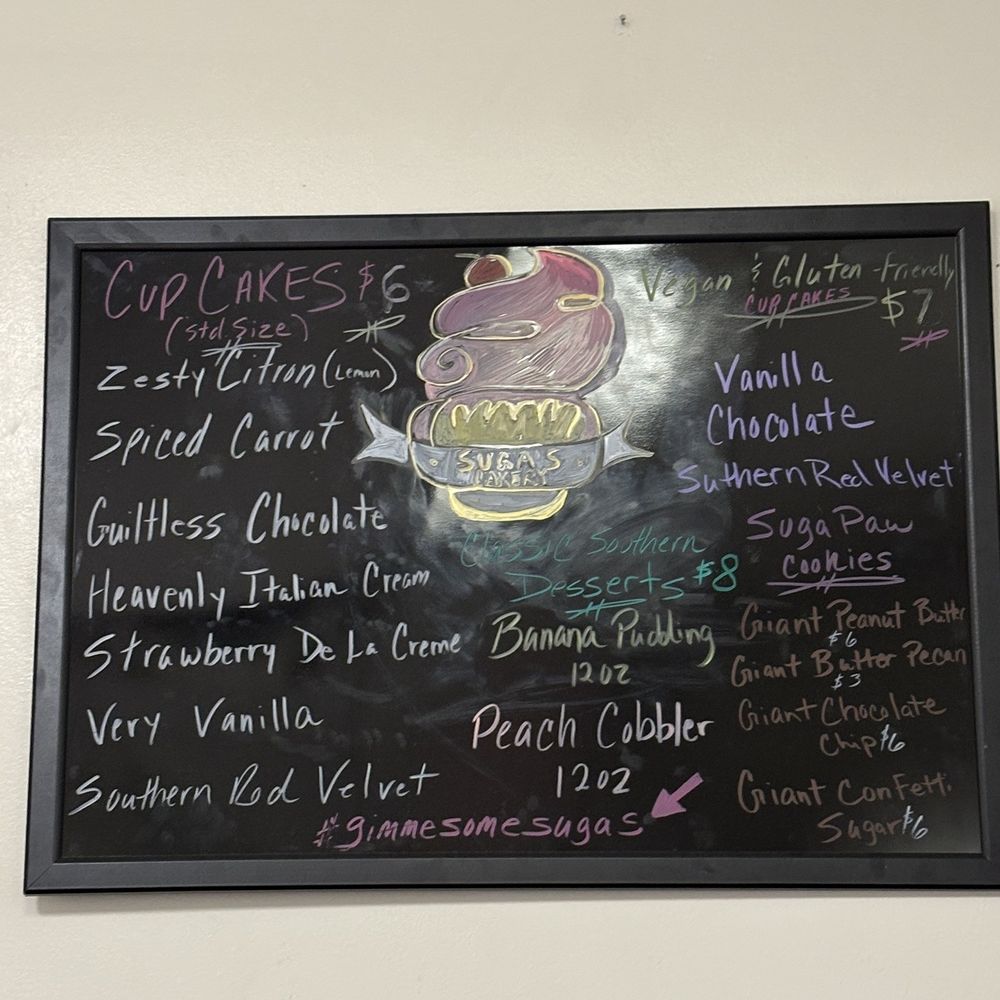 CUPCAKES $6
(std. Size)
Zesty Citron (Lemon)
Spiced Carrot
Guiltless Chocolate
Heavenly Italian Cream
Strawberry De La Creme
Very Vanilla
Southern Red Velvet
SUGA'S
BAKERY
Classic Southern
Desserts $8
Banana Pudding
12oz
Peach Cobbler
12oz
#gimmesomesugas
Vegan & Gluten-friendly
CUPCAKES $7
Vanilla
Chocolate
Suthern Red Velvet
Suga Paw
Cookies
Giant Peanut Butter
$6
Giant Butter Pecan
$3
Giant Chocolate
Chip $6
Giant Confetti
Sugar $6